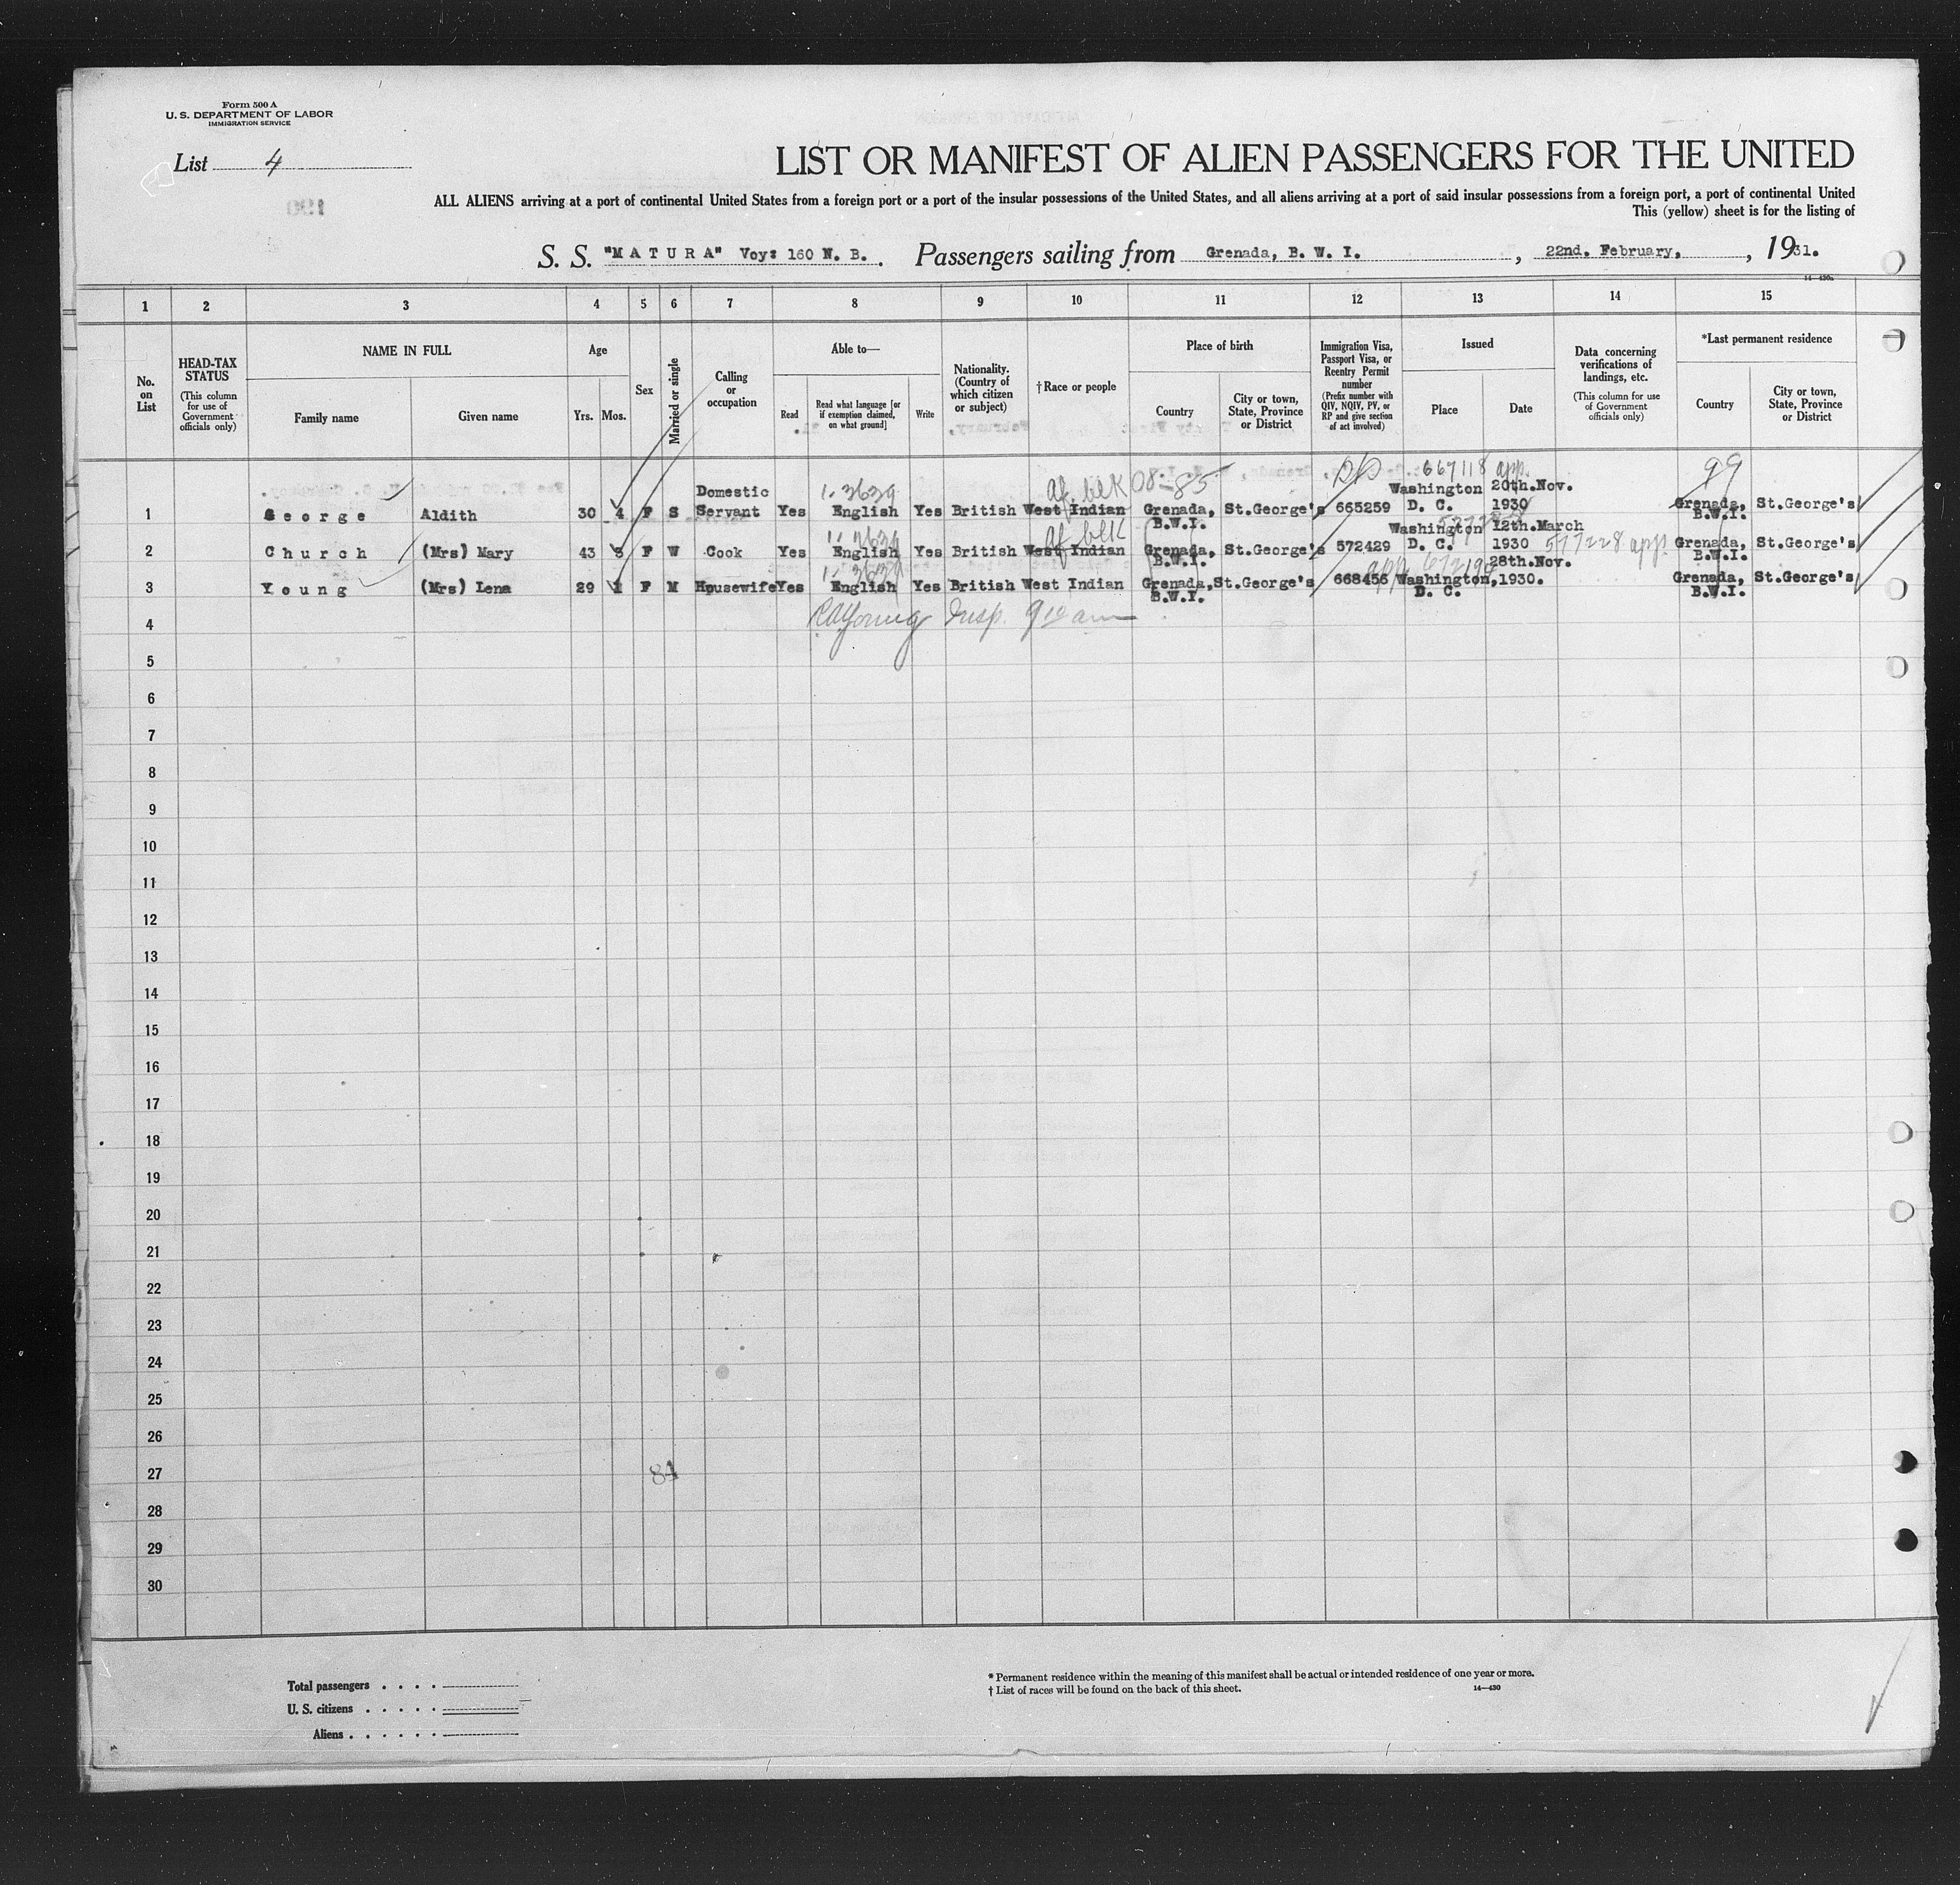 Form 500 A
U. S. DEPARTMENT OF LABOR
IMMIGRATION SERVICE
List 4
LIST OR MANIFEST OF ALIEN PASSENGERS FOR THE UNITED
ALL ALIENS arriving at a port of continental United States from a foreign port or a port of the insular possessions of the United States, and all aliens arriving at a port of said insular possessions from a foreign port, a port of continental United
This (yellow) sheet is for the listing of
S. S. "MATURA" Voy: 160 N. B. Passengers sailing from Grenada, B. W. I. , 22nd. February, , 1931.
1 2 3 4 5 6 7 8 9 10 11 12 13 14 15
No. on List
HEAD-TAX STATUS
(This column for use of Government officials only)
NAME IN FULL
Family name
Given name
Age
Yrs. Mos.
Sex
Married or single
Calling or occupation
Able to—
Read
Read what language [or if exemption claimed, on what ground]
Write
Nationality. (Country of which citizen or subject)
†Race or people
Place of birth
Country
City or town, State, Province or District
Immigration Visa, Passport Visa, or Reentry Permit number
(Prefix number with QIV, NQIV, PV, or RP and give section of act involved)
Issued
Place
Date
Data concerning verifications of landings, etc.
(This column for use of Government officials only)
*Last permanent residence
Country
City or town, State, Province or District
af. blk 08-85 667118 app. 99
1 George Aldith 30 4 F S Domestic Servant Yes English Yes British West Indian Grenada, B.W.I. St.George's 665259 Washington D. C. 20th.Nov. 1930 Grenada, B.W.I. St.George's
af blk
2 Church (Mrs) Mary 43 5 F W Cook Yes English Yes British West Indian Grenada, B.W.I. St.George's 572429 Washington D. C. 12th.March 1930 577228 app. Grenada, B.W.I. St.George's
3 Young (Mrs) Lena 29 1 F M Housewife Yes English Yes British West Indian Grenada, B.W.I. St.George's 668456 Washington, D. C. 28th.Nov. 1930. Grenada, B.W.I. St.George's
4 Young Insp. 9 10 am
5
6
7
8
9
10
11
12
13
14
15
16
17
18
19
20
21
22
23
24
25
26
27
84
28
29
30
Total passengers . . . .
U. S. citizens . . . . .
Aliens . . . . . .
* Permanent residence within the meaning of this manifest shall be actual or intended residence of one year or more.
† List of races will be found on the back of this sheet. 14—430